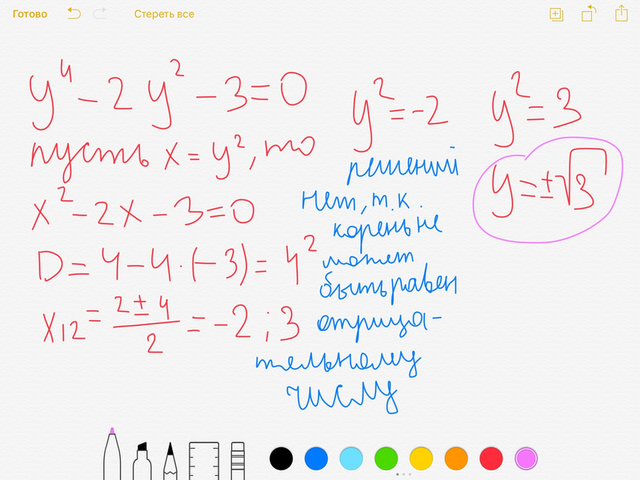 Готово
Стереть все
y⁴ – 2y² – 3 = 0
пусть x = y², то
x² – 2x – 3 = 0
D = 4 – 4·(–3) = 4²
x₁₂ = (2 ± 4)/2 = –2; 3
y² = –2
решений
нет, т.к.
корень не
может
быть равен
отрица-
тельному
числу
y² = 3
y = ±√3